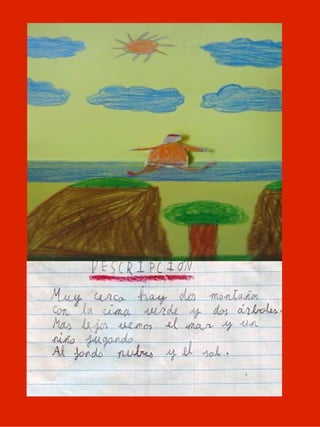 DESCRIPCION
Muy cerca hay dos montañas
con la cima verde y dos árboles.
Mas lejos vemos el mar y un
niño jugando
Al fondo nubes y el sol.